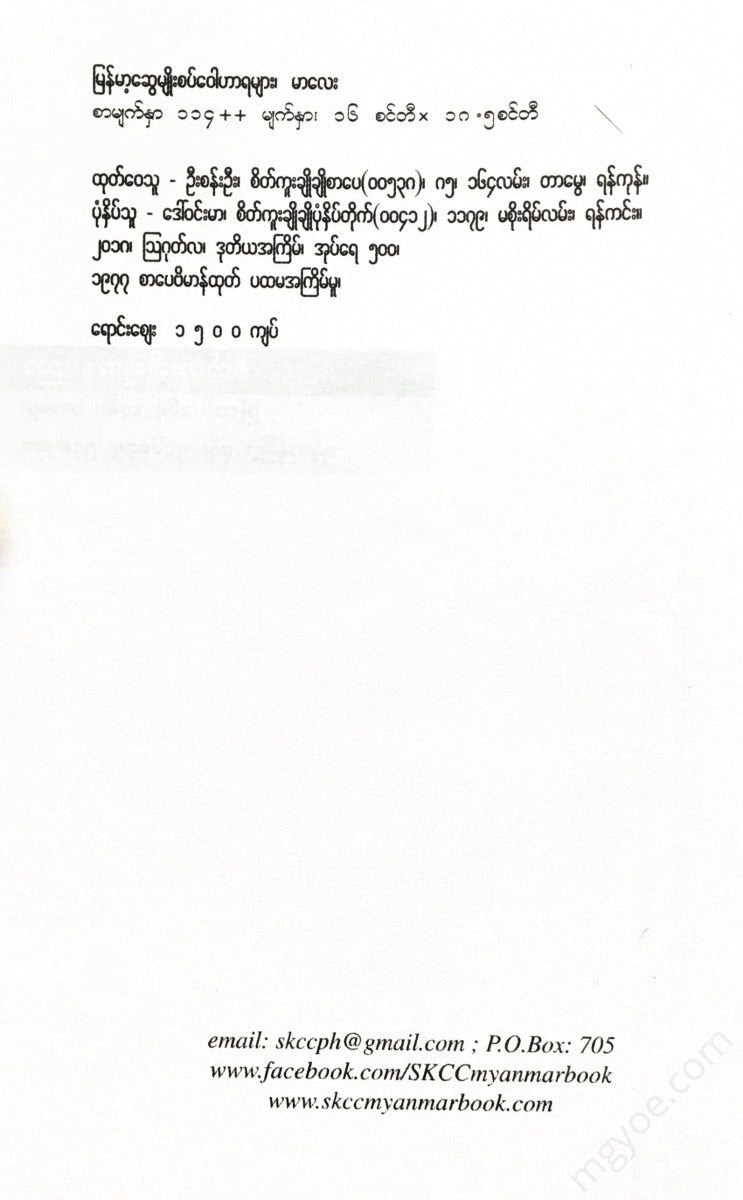 မြန်မာ့ဆွေမျိုးစပ်ဝေါဟာရများ၊ မာလေး
စာမျက်နှာ ၁၁၄++ မျက်နှာ၊ ၁၆ စင်တီ× ၁၈.၅စင်တီ
ထုတ်ဝေသူ - ဦးစန်းဦး၊ စိတ်ကူးချိုချိုစာပေ(၀၀၅၃၈)၊ ၈၅၊ ၁၆၄လမ်း၊ တာမွေ၊ ရန်ကုန်။
ပုံနှိပ်သူ - ဒေါ်ဝင်းမာ၊ စိတ်ကူးချိုချိုပုံနှိပ်တိုက်(၀၀၄၁၂)၊ ၁၁၇၉၊ မစိုးရိမ်လမ်း၊ ရန်ကင်း။
၂၀၁၈၊ ဩဂုတ်လ၊ ဒုတိယအကြိမ်၊ အုပ်ရေ ၅၀၀၊
၁၉၇၇ စာပေဗိမာန်ထုတ် ပထမအကြိမ်မူ၊
ရောင်းဈေး ၁ ၅ ၀ ၀ ကျပ်
email: skccph@gmail.com ; P.O.Box: 705
www.facebook.com/SKCCmyanmarbook
www.skccmyanmarbook.com
mgyoe.com